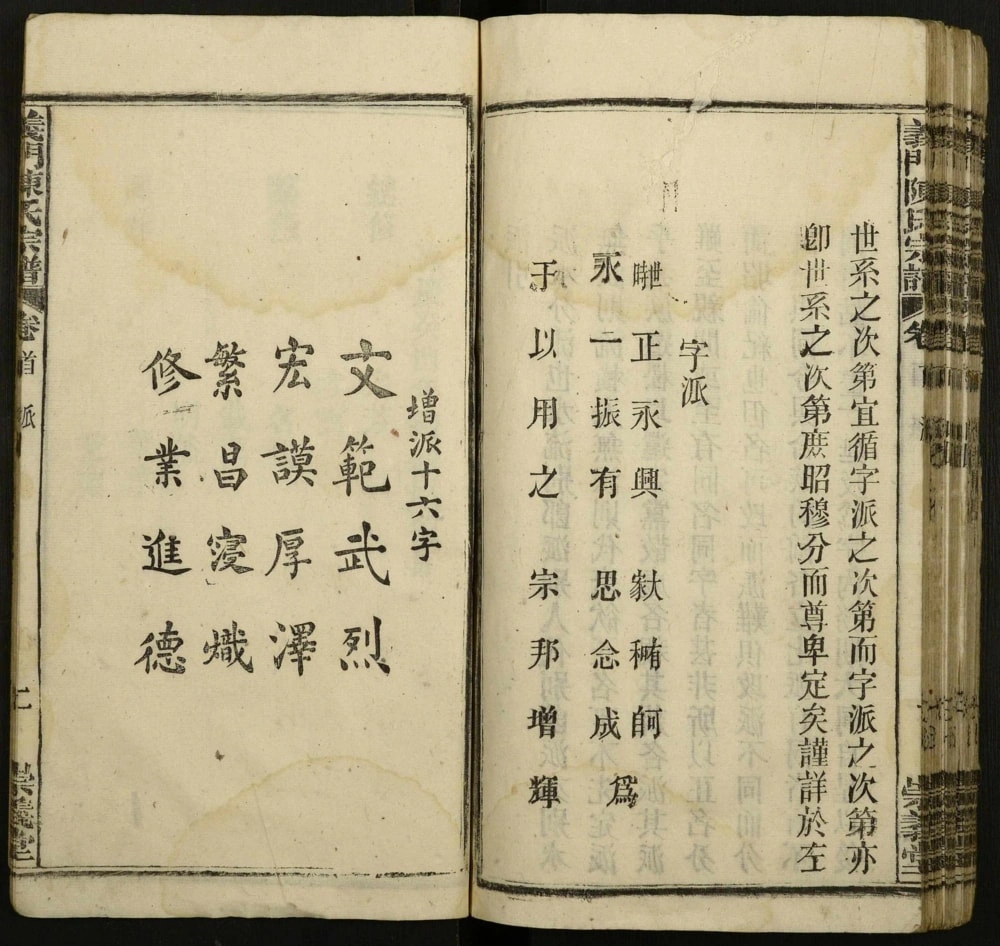 義門陳氏宗譜 卷 崇義堂
世系之次第宜循字派之次第而字派之次第亦
卽世系之次第庶昭穆分而尊卑定矣謹詳於左
字派
正永興
永二振有思念成爲
于以用之宗邦增輝
增派十六字
文範武烈
宏謨厚澤
繁昌寖熾
修業進德
義門陳氏宗譜 卷首 派 崇義堂